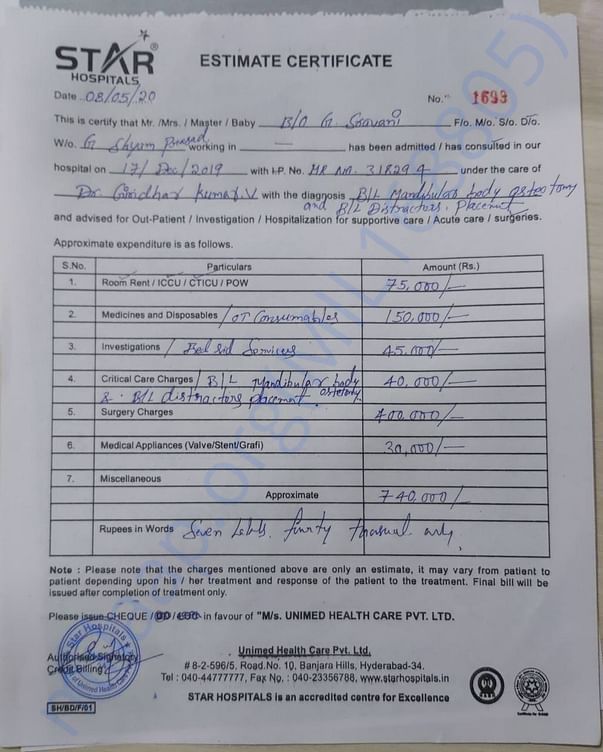 STAR®
HOSPITALS
ESTIMATE CERTIFICATE
Date 08/05/20
No. 1693
This is certify that Mr. /Mrs. / Master / Baby B/O G. Sravani F/o. M/o. S/o. D/o.
W/o. G Shyam Prasad working in — has been admitted / has consulted in our
hospital on 17/Dec/2019 with I.P. No. MR No. 318294 under the care of
Dr. Giridhar Kumar.V with the diagnosis B/L Mandibular body osteotomy
and B/L Distractors. Placement
and advised for Out-Patient / Investigation / Hospitalization for supportive care / Acute care / surgeries.
Approximate expenditure is as follows.
S.No. Particulars Amount (Rs.)
1. Room Rent / ICCU / CTICU / POW 75,000/-
2. Medicines and Disposables / OT Consumables 150,000/-
3. Investigations / Bed sid Services 45,000/-
4. Critical Care Charges / B/L Mandibular body osteotomy 40,000/-
& B/L distractors placement.
5. Surgery Charges 400,000/-
6. Medical Appliances (Valve/Stent/Grafi) 30,000/-
7. Miscellaneous
Approximate 740,000/-
Rupees in Words Seven Lakhs. fourty thousand only.
Note : Please note that the charges mentioned above are only an estimate, it may vary from patient to
patient depending upon his / her treatment and response of the patient to the treatment. Final bill will be
issued after completion of treatment only.
Please issue CHEQUE / DD / in favour of "M/s. UNIMED HEALTH CARE PVT. LTD.
Star Hospitals
of Unimed Health Care
Authorised Signatory
Credit Billing
Unimed Health Care Pvt. Ltd.
# 8-2-596/5, Road.No. 10, Banjara Hills, Hyderabad-34.
Tel : 040-44777777, Fax No. : 040-23356788, www.starhospitals.in
STAR HOSPITALS is an accredited centre for Excellence
SH/BD/F/01